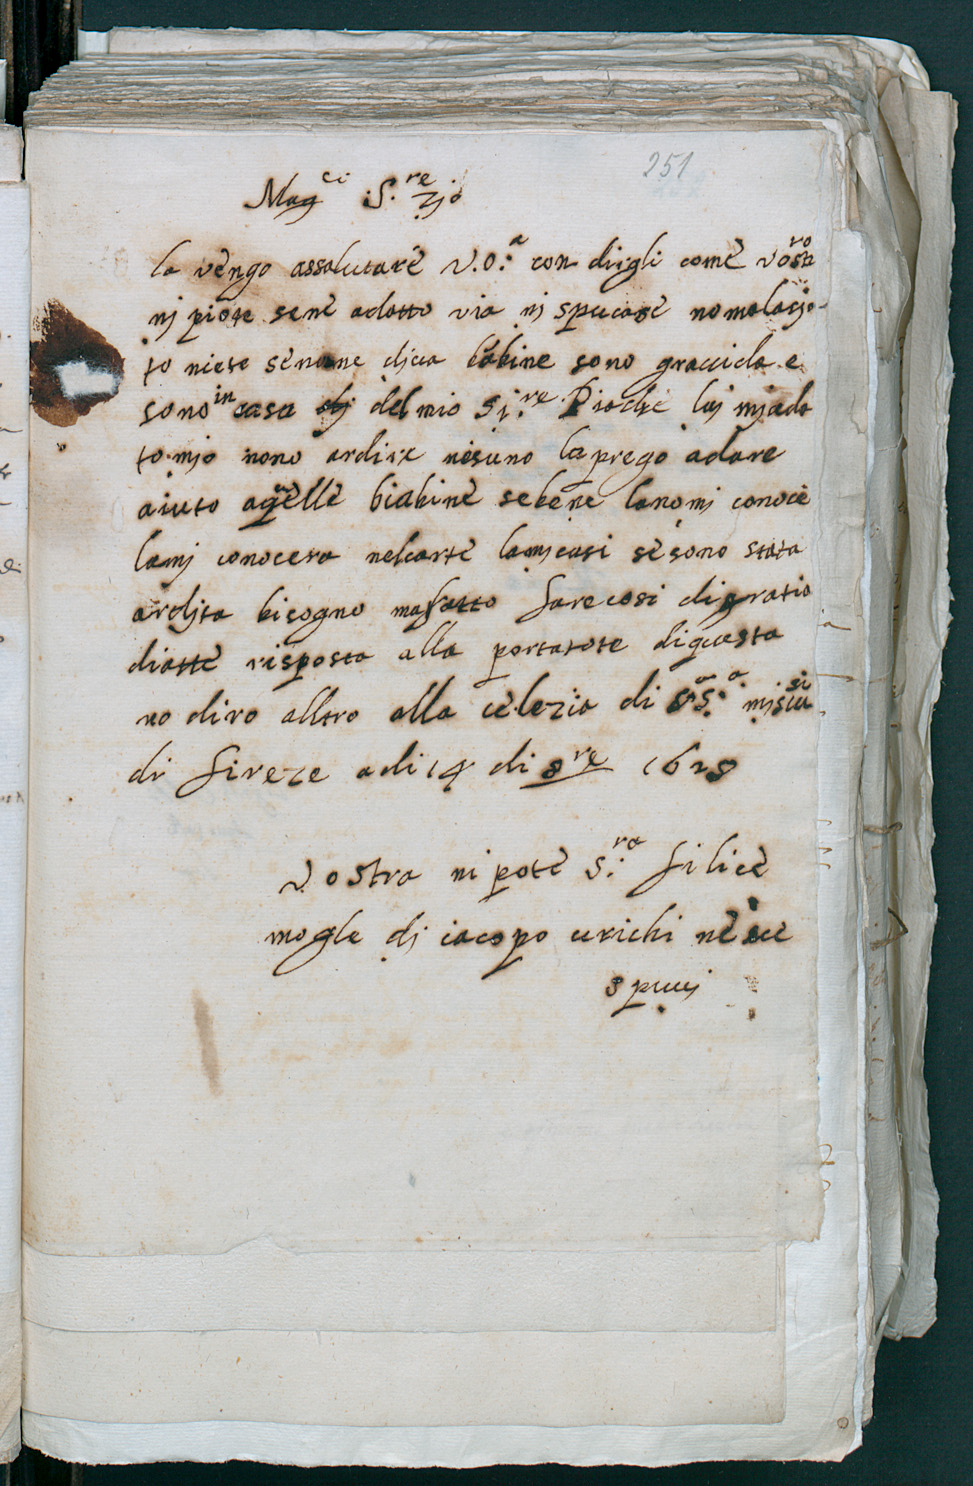 251
Mag.ci S.re Zjo
la vengo assalutare V.S.a con dirgli come vostro
nj pote sene adatto via nj spucase nomalasja
to niete senone djua babine sono gravida e
sono in casa del mio Si.re Pioche luj mjada
to mjo nono ardire nesuno la prego adare
aiuto aquelle biabine sebene lanomj conoce
lamj conocera nelcarte lamjcusi se sono stata
ardjta bisogno mafatto fare cosi digratia
diatte risposta alla portatote diquesta
no diro alltro alla celezia di S.a mjscusi
di fireze adi 14 di 8re 1628
Vostra nipote S.ra filice
mogle dj iacopo